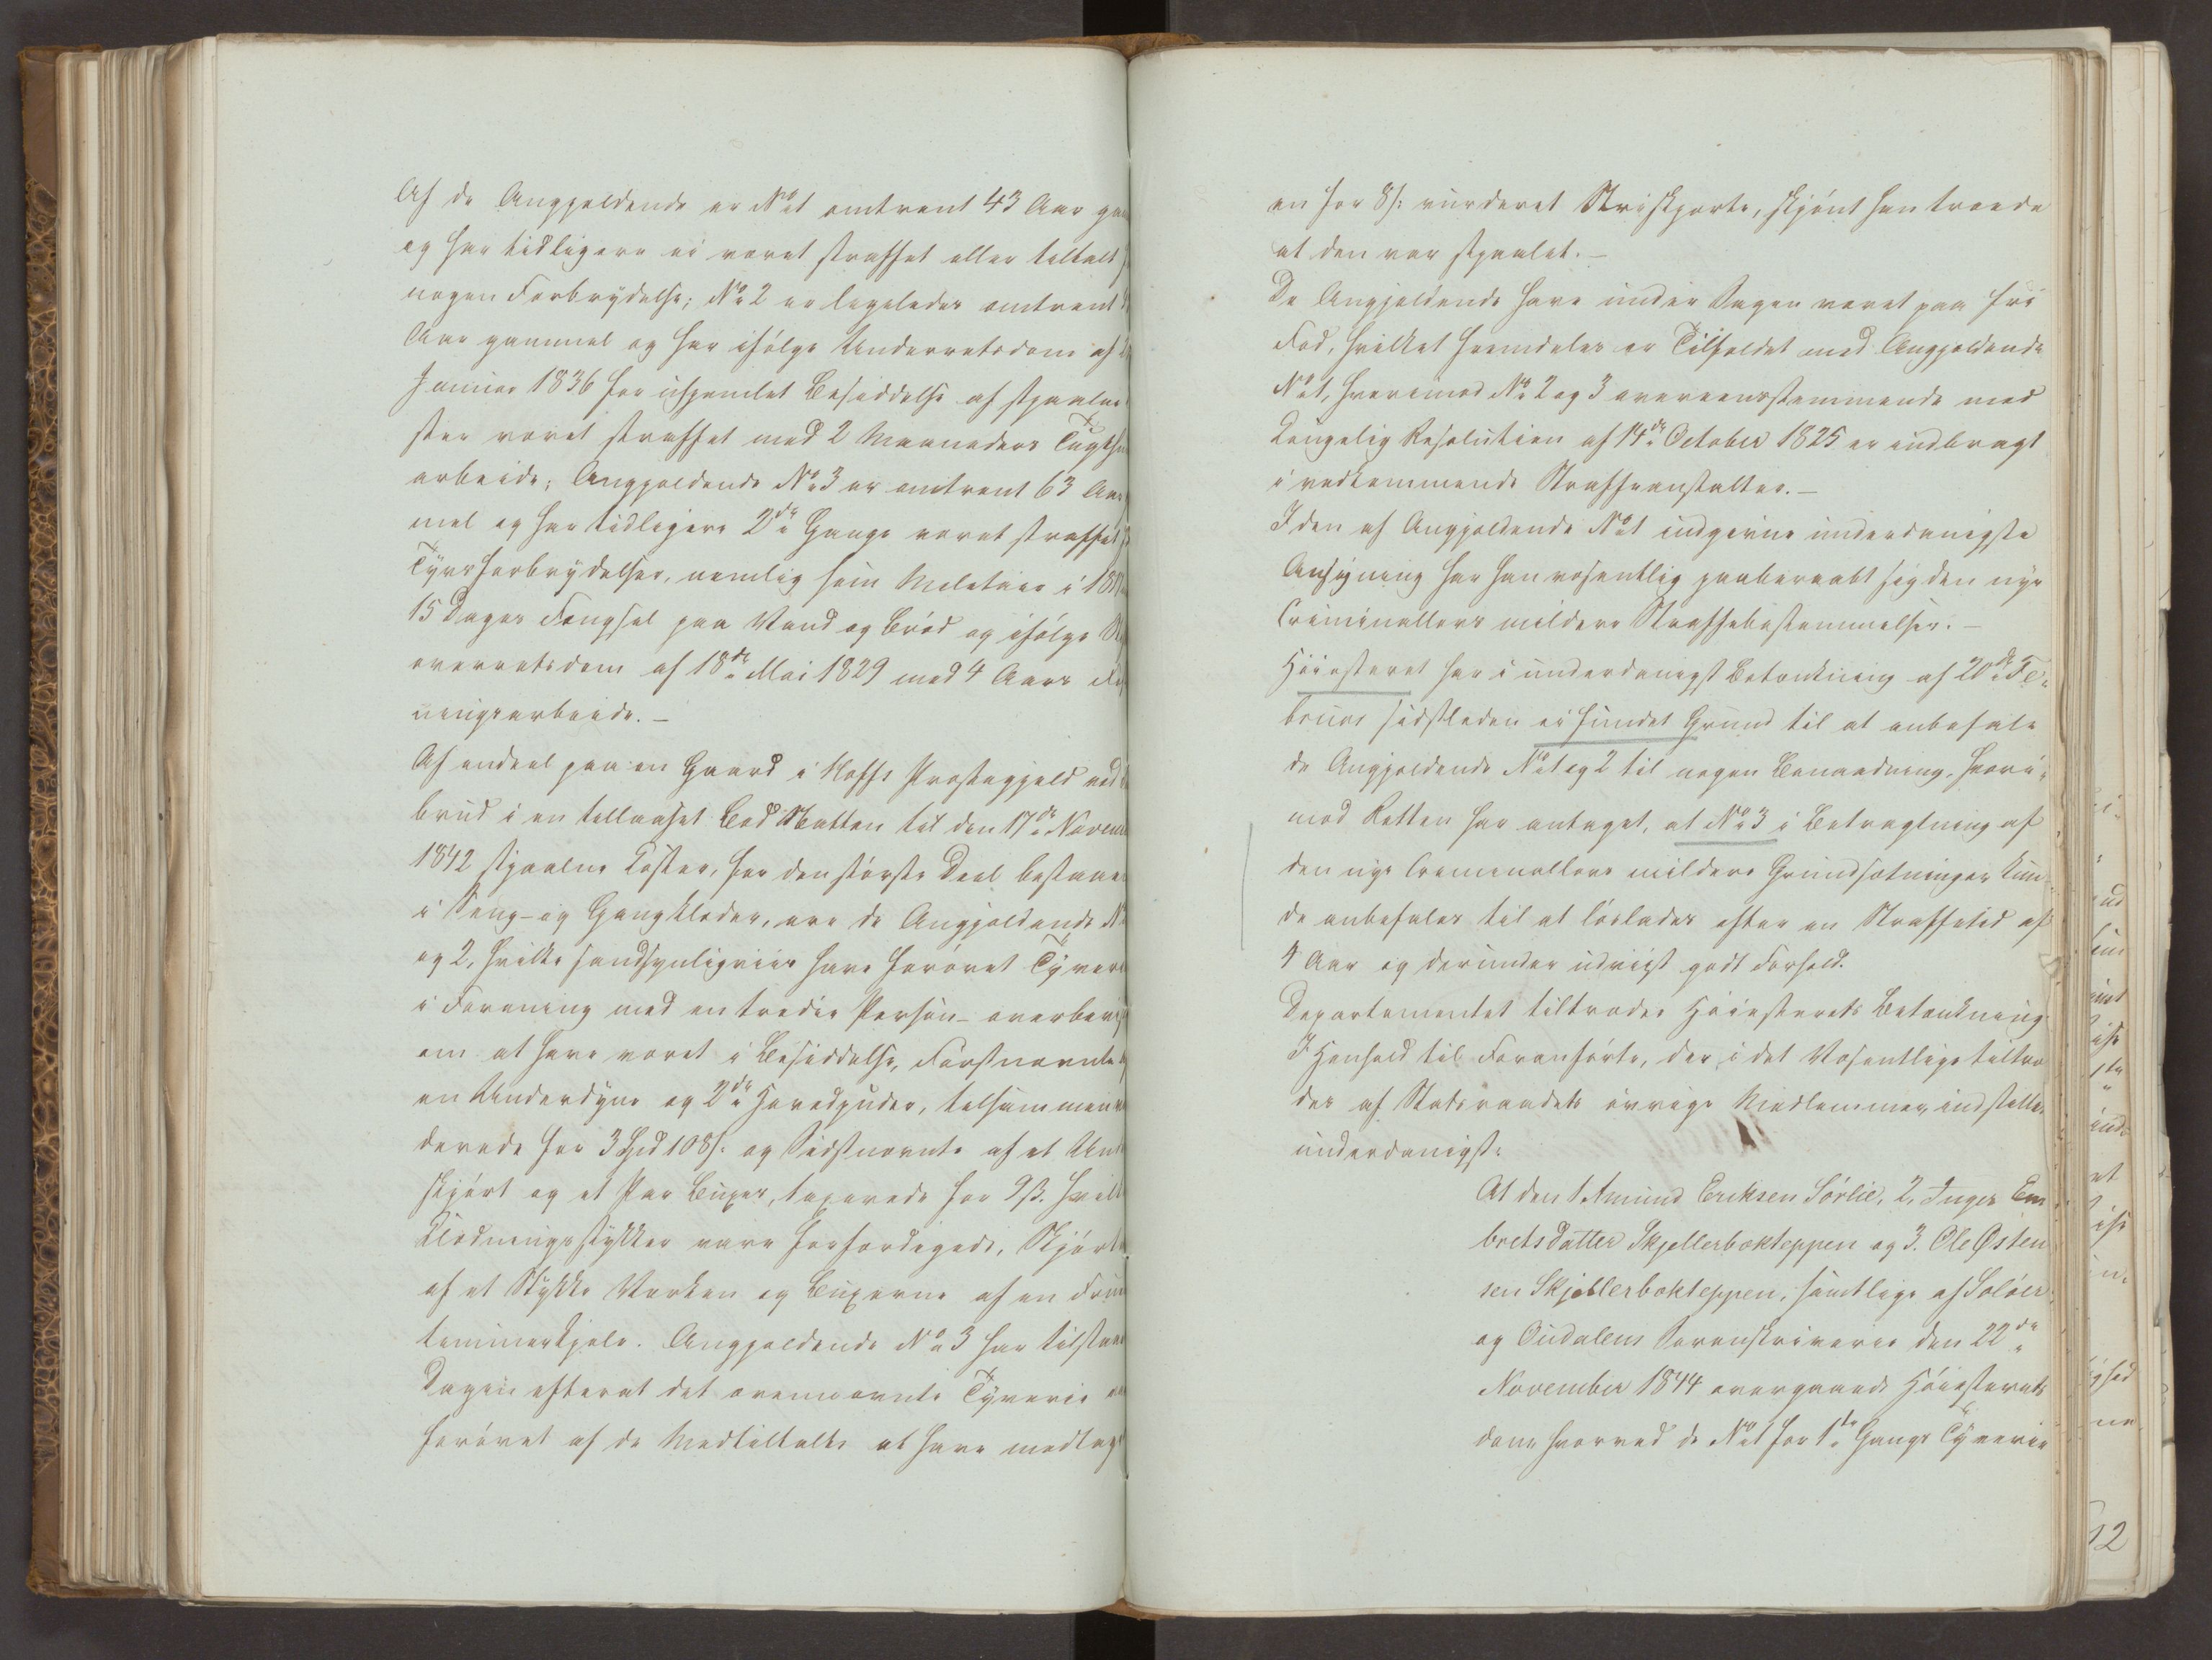 Af de Angjeldende er No 1 omtrent 43 Aar ga
og har tidligere ei været straffet eller tiltalt f
nogen Forbrydelse; No 2 er ligeledes omtrent
Aar gammel og har ifølge Underretsdom af
Januar 1836 for uhjemlet Besiddelse af stjaalne
ster været straffet med 2 Maaneders Tugthu
arbeide; Angjeldende No 3 er omtrent 63 Aar
mel og har tidligere 2de Gange været straffet f
Tyvsforbrydelser, nemlig som Militair i 18
15 Dages Fængsel paa Vand og Brød og ifølge St
overretsdom af 18de Mai 1829 med 4 Aars Fæ
ningsarbeide. –
Af endeel paa en Gaard i Hoffs Præstegjeld ved
brud i en tillaaset Bod Natten til den 17de Novem
1842 stjaalne Koster, for den største Deel bestaaen
i Seng- og Gangklæder, ere de Angjeldende No
og 2, hvilke sandsynligviis have forøvet Tyver
i Forening med en tredie Person – overbevi
om at have været i Besiddelse, Førstnævnte
en Underdyne og 2de Hovedpuder, tilsammen
derede for 3 Spd 108 s. og Sidstnævnte af et Und
skjørt og et Par Buxer, taxerede for 9 ß. hvilk
Klædningsstykker vare forfærdigede, Skjørt
af et Stykke Verken og Buxerne af en Fruen
timmerkjole. Angjeldende No 3 har tilstaae
Dagen efterat det ovennævnte Tyverie
forøvet af de Medtiltalte at have modtag
en for 8 s. vurderet Striskjorte, skjønt han troede
at den var stjaalet. –
De Angjeldende have under Sagen været paa fri
Fod, hvilket fremdeles er Tilfældet med Angjeldende
No 1, hvorimod No 2 og 3 overeensstemmende med
Kongelig Resolution af 14de October 1825 er indbragt
i vedkommende Straffeanstalter. –
I den af Angjeldende No 1 indgivne underdanigste
Ansøgning har han væsentlig paaberaabt sig den nye
Criminallovs mildere Straffebestemmelser. –
Høiesteret har i underdanigst Betænkning af 20de Fe-
bruar sidstleden ei fundet Grund til at anbefale
de Angjeldende No 1 og 2 til nogen Benaadning, hvori-
mod Retten har antaget, at No 3 i Betragtning af
den nye Criminallovs mildere Grundsætninger kun-
de anbefales til at løslades efter en Straffetid af
4 Aar og derunder udviist godt Forhold.
Departementet tiltræder Høiesterets Betænkning.
I Henhold til Foranførte, der i det Væsentlige tiltræ
des af Statsraadets øvrige Medlemmer, indstilles
underdanigst:
At den 1. Amund Eriksen Sørlie, 2. Inger Em
bretsdatter Skjellerbækteppen og 3. Ole Østen
sen Skjellerbækteppen, samtlige af Soløer
og Oudalens Sorenskriverie den 22de
November 1844 overgaaede Høiesterets
dom hvorved de No 1 for 1ste Gangs Tyverie
12